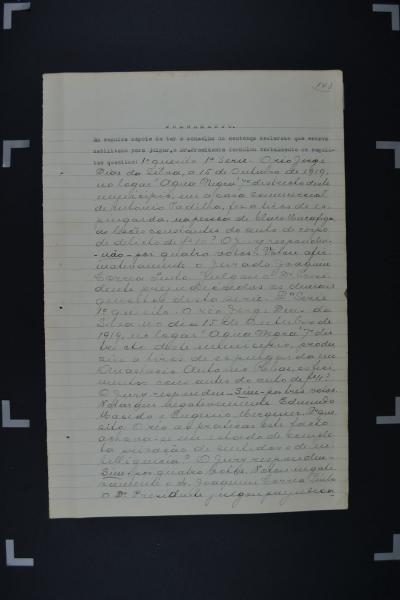 143
JULGAMENTO.
Em seguida depois de ter o conselho de sentença declarado que estava
habilitado para julgar, o Dr. Presidente formulou
tes questões: 1º quesito 1ª Serie. O réo Jorge
Dias da Silva, a 15 de Outubro de 1919,
no logar "Agua Negra" 7º districto deste
municipio, em a casa commercial
de Antonio Padilha, fez tiros de es-
pingarda na pessoa de
as lesões constantes do auto de corpo
de delicto de fls 10? O Jury respondeu
-não- por quatro votos. Votou affir-
mativamente o jurado Joaquim
Corrêa Pinto. Julgando o Dr. Presi-
dente prejudicados os demais
quesitos desta serie. 2ª Serie
1º quesito. O réo Jorge Dias da
Silva no dia 15 de Outubro de
1919, no logar "Agua Negra" 7º dis-
tricto deste municipio, produ-
ziu a tiros de espingarda em
Anastacio Antonio os feri-
mentos constantes do auto de fls
O Jury respondeu -Sim- por tres votos.
Votaram negativamente Edmundo
Macedo e Eugenio 2º que-
sito. O réo ao praticar este facto
achava-se em estado de comple-
ta privação de sentidos e de in-
telligencia? O Jury respondeu-
Sim- por quatro votos. Votou nega-
tivamente o sr. Joaquim Corrêa Pinto
O Dr. Presidente julgou prejudica-